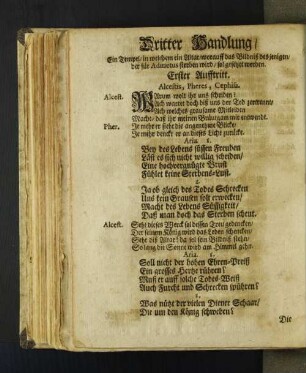 Dritter Handlung/
Ein Tempel/ in welchem ein Altar worauff das Bildnis desjenigen/
der für Admetus sterben wird/ sol gesetzt werden.
Erster Aufftritt.
Alcestis, Pheres, Cephisa.
Alcest. Warum wolt ihr uns scheiden?
Ach wartet doch biß uns der Tod
Ach welches grausame Mitleiden
Macht/ daß ihr meinen Untergang
Pher. Je mehr er siehe die angenehme Blicke/
Je mehr denckt er an dieses Licht zurücke.
Aria. 1.
Bey des Lebens süssen Freuden
Läst es sich nicht willig scheiden/
Eine hochvergnügte Brust
Fühlet keine Sterbens-Lust.
2.
Ja ob gleich des Todes Schrecken
Uns kein Grausen solt erwecken/
Macht des Lebens Süßigkeit/
Daß man doch das Sterben scheut.
Alcest. Seht dieses Werck ist dessen Treu gedencken/
Der seinem König wird das Leben schencken/
Seht diß Altar! da sol sein Bildniß stehn/
So lang die Sonne wird am Himmel gehn.
Aria. 1.
Soll nicht der hohen Ehren-Preiß
Ein grosses Hertze rühren?
Muß er auff solche Todes-Weiß
Auch Furcht und Schrecken spühren?
2.
Was nützt der vielen Diener Schaar/
Die um den König schweben?
Die